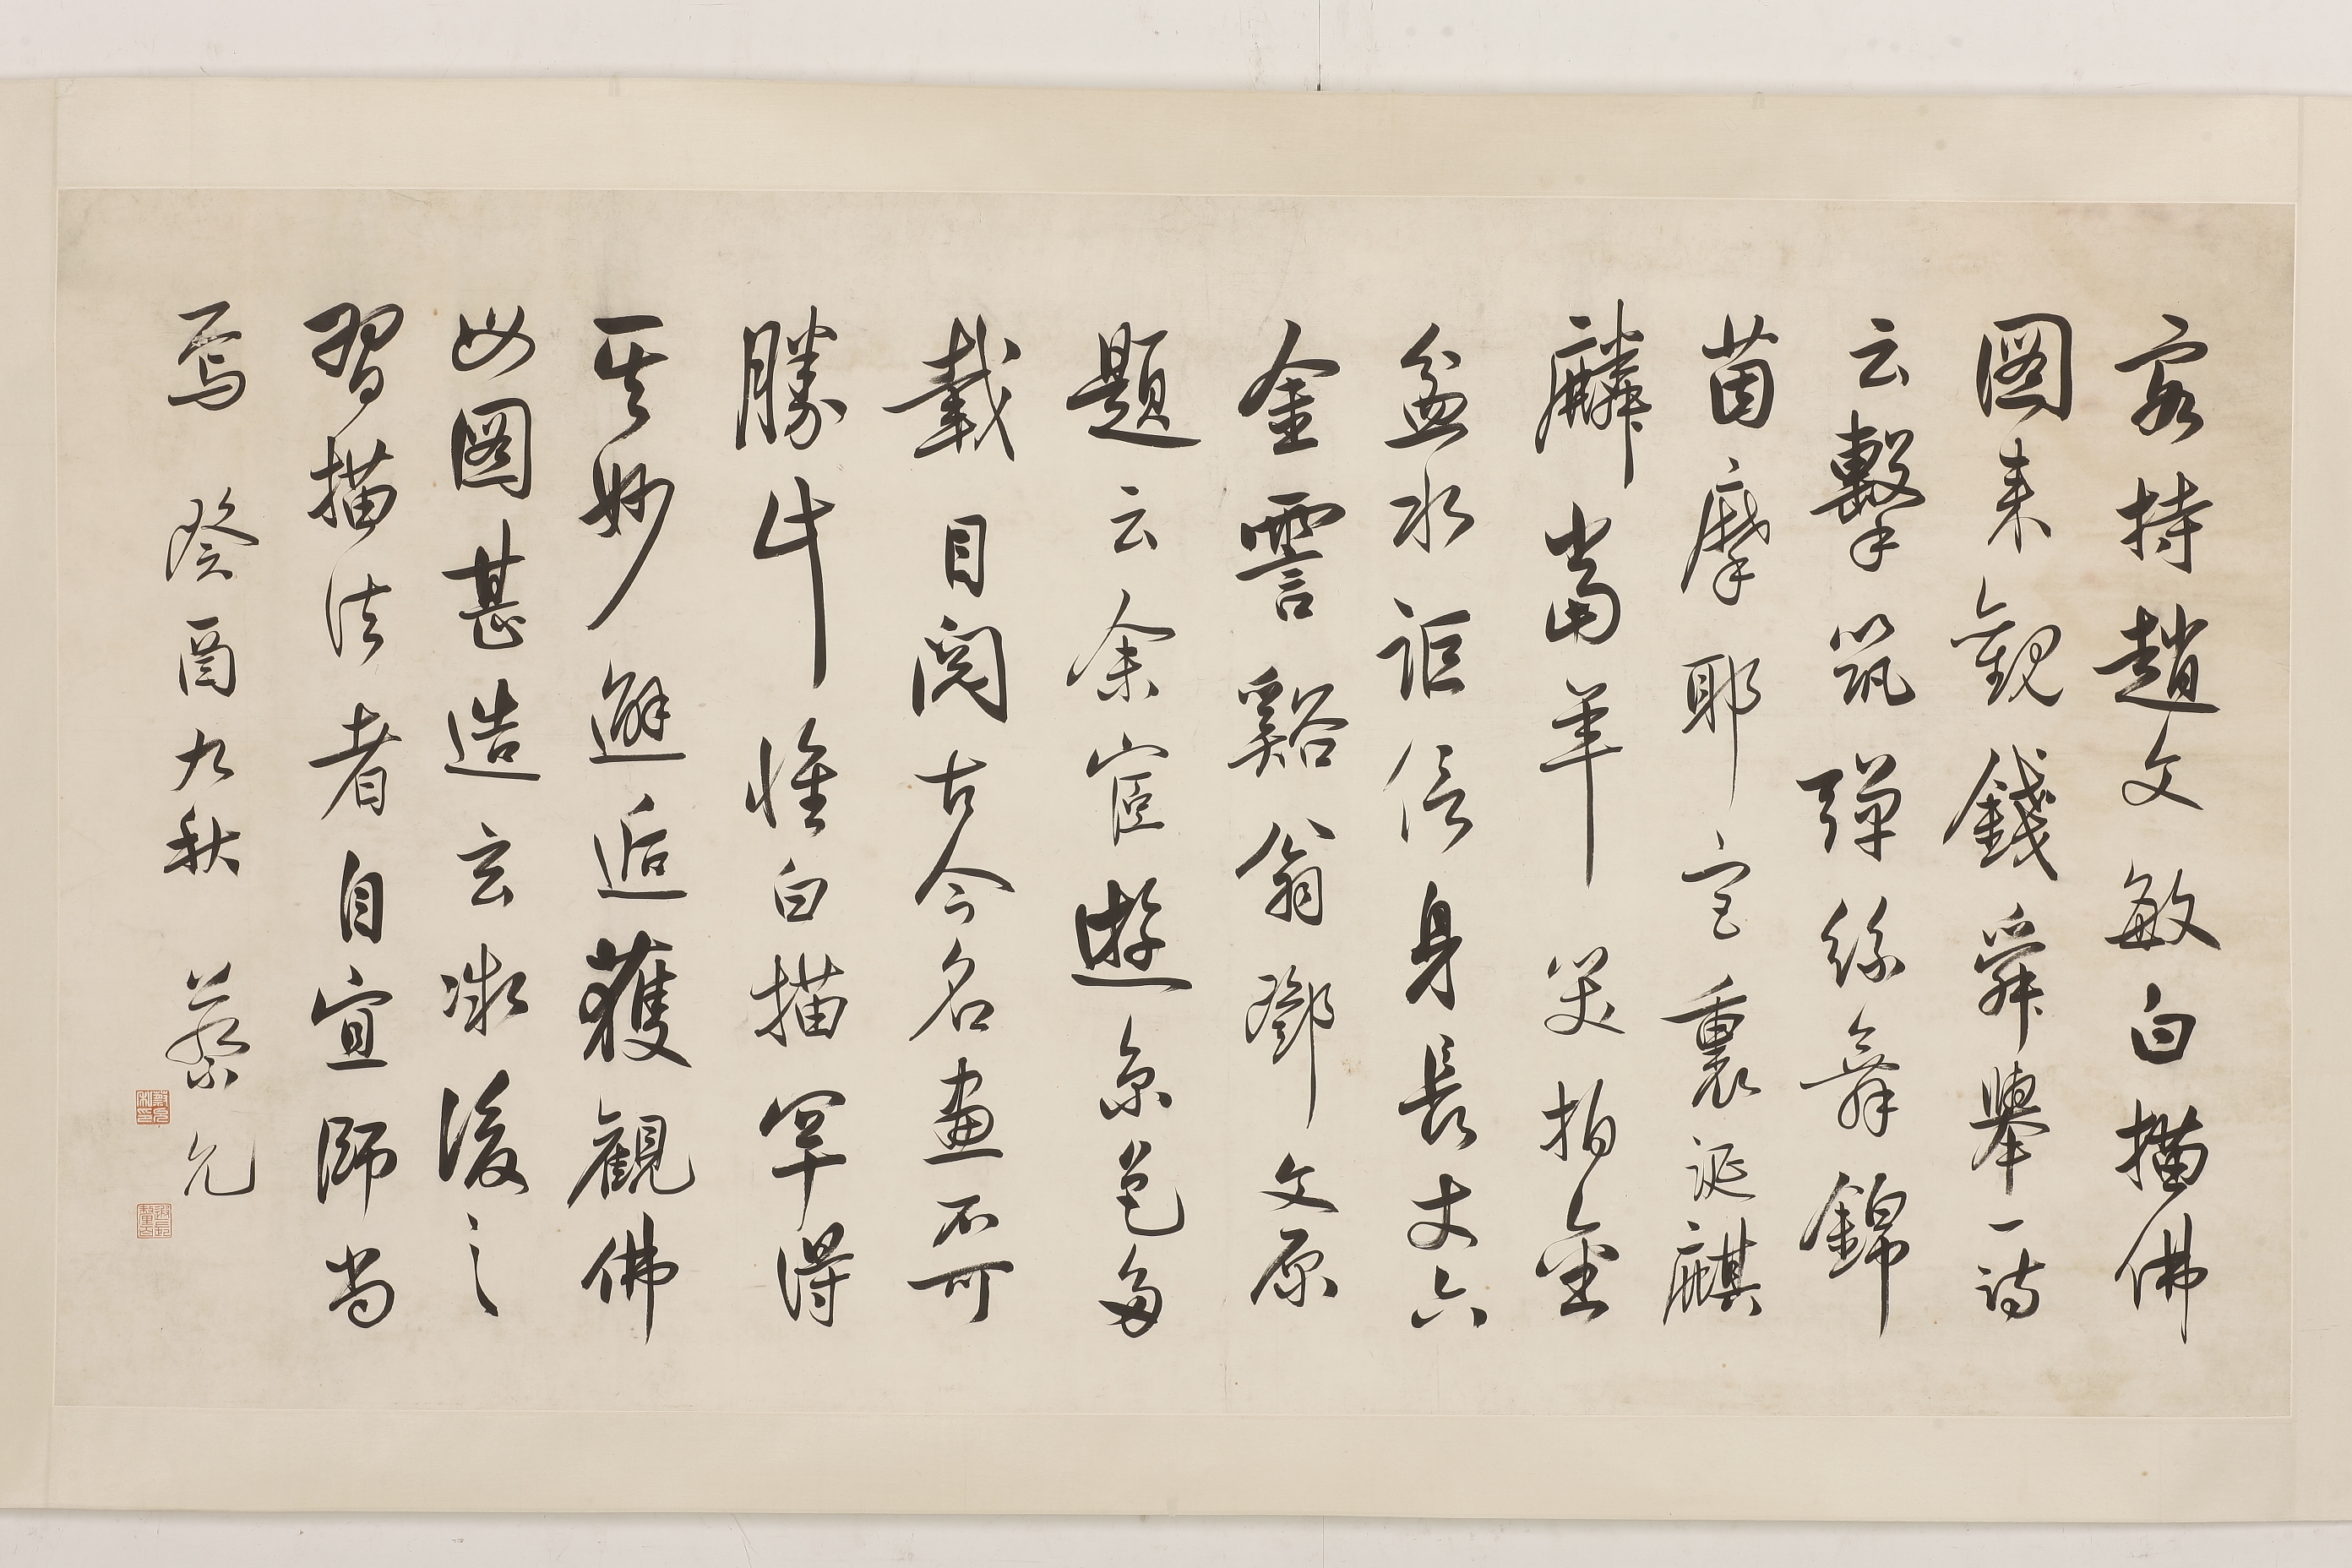 客持趙文敏白描佛
圖来觀錢舜舉一詩
云擊筑彈絲舞錦
茵摩耶宫裏誕麒
麟當年笑拍金
盆水詎信身長丈六
金雲谿翁鄧文原
題云余宦遊京邑多
載目閱古今名畫不可
勝計惟白描罕得
其妙邂逅獲觀佛
母圖甚造玄微後之
習描法者自宜師尚
焉 癸酉九秋 蔡允